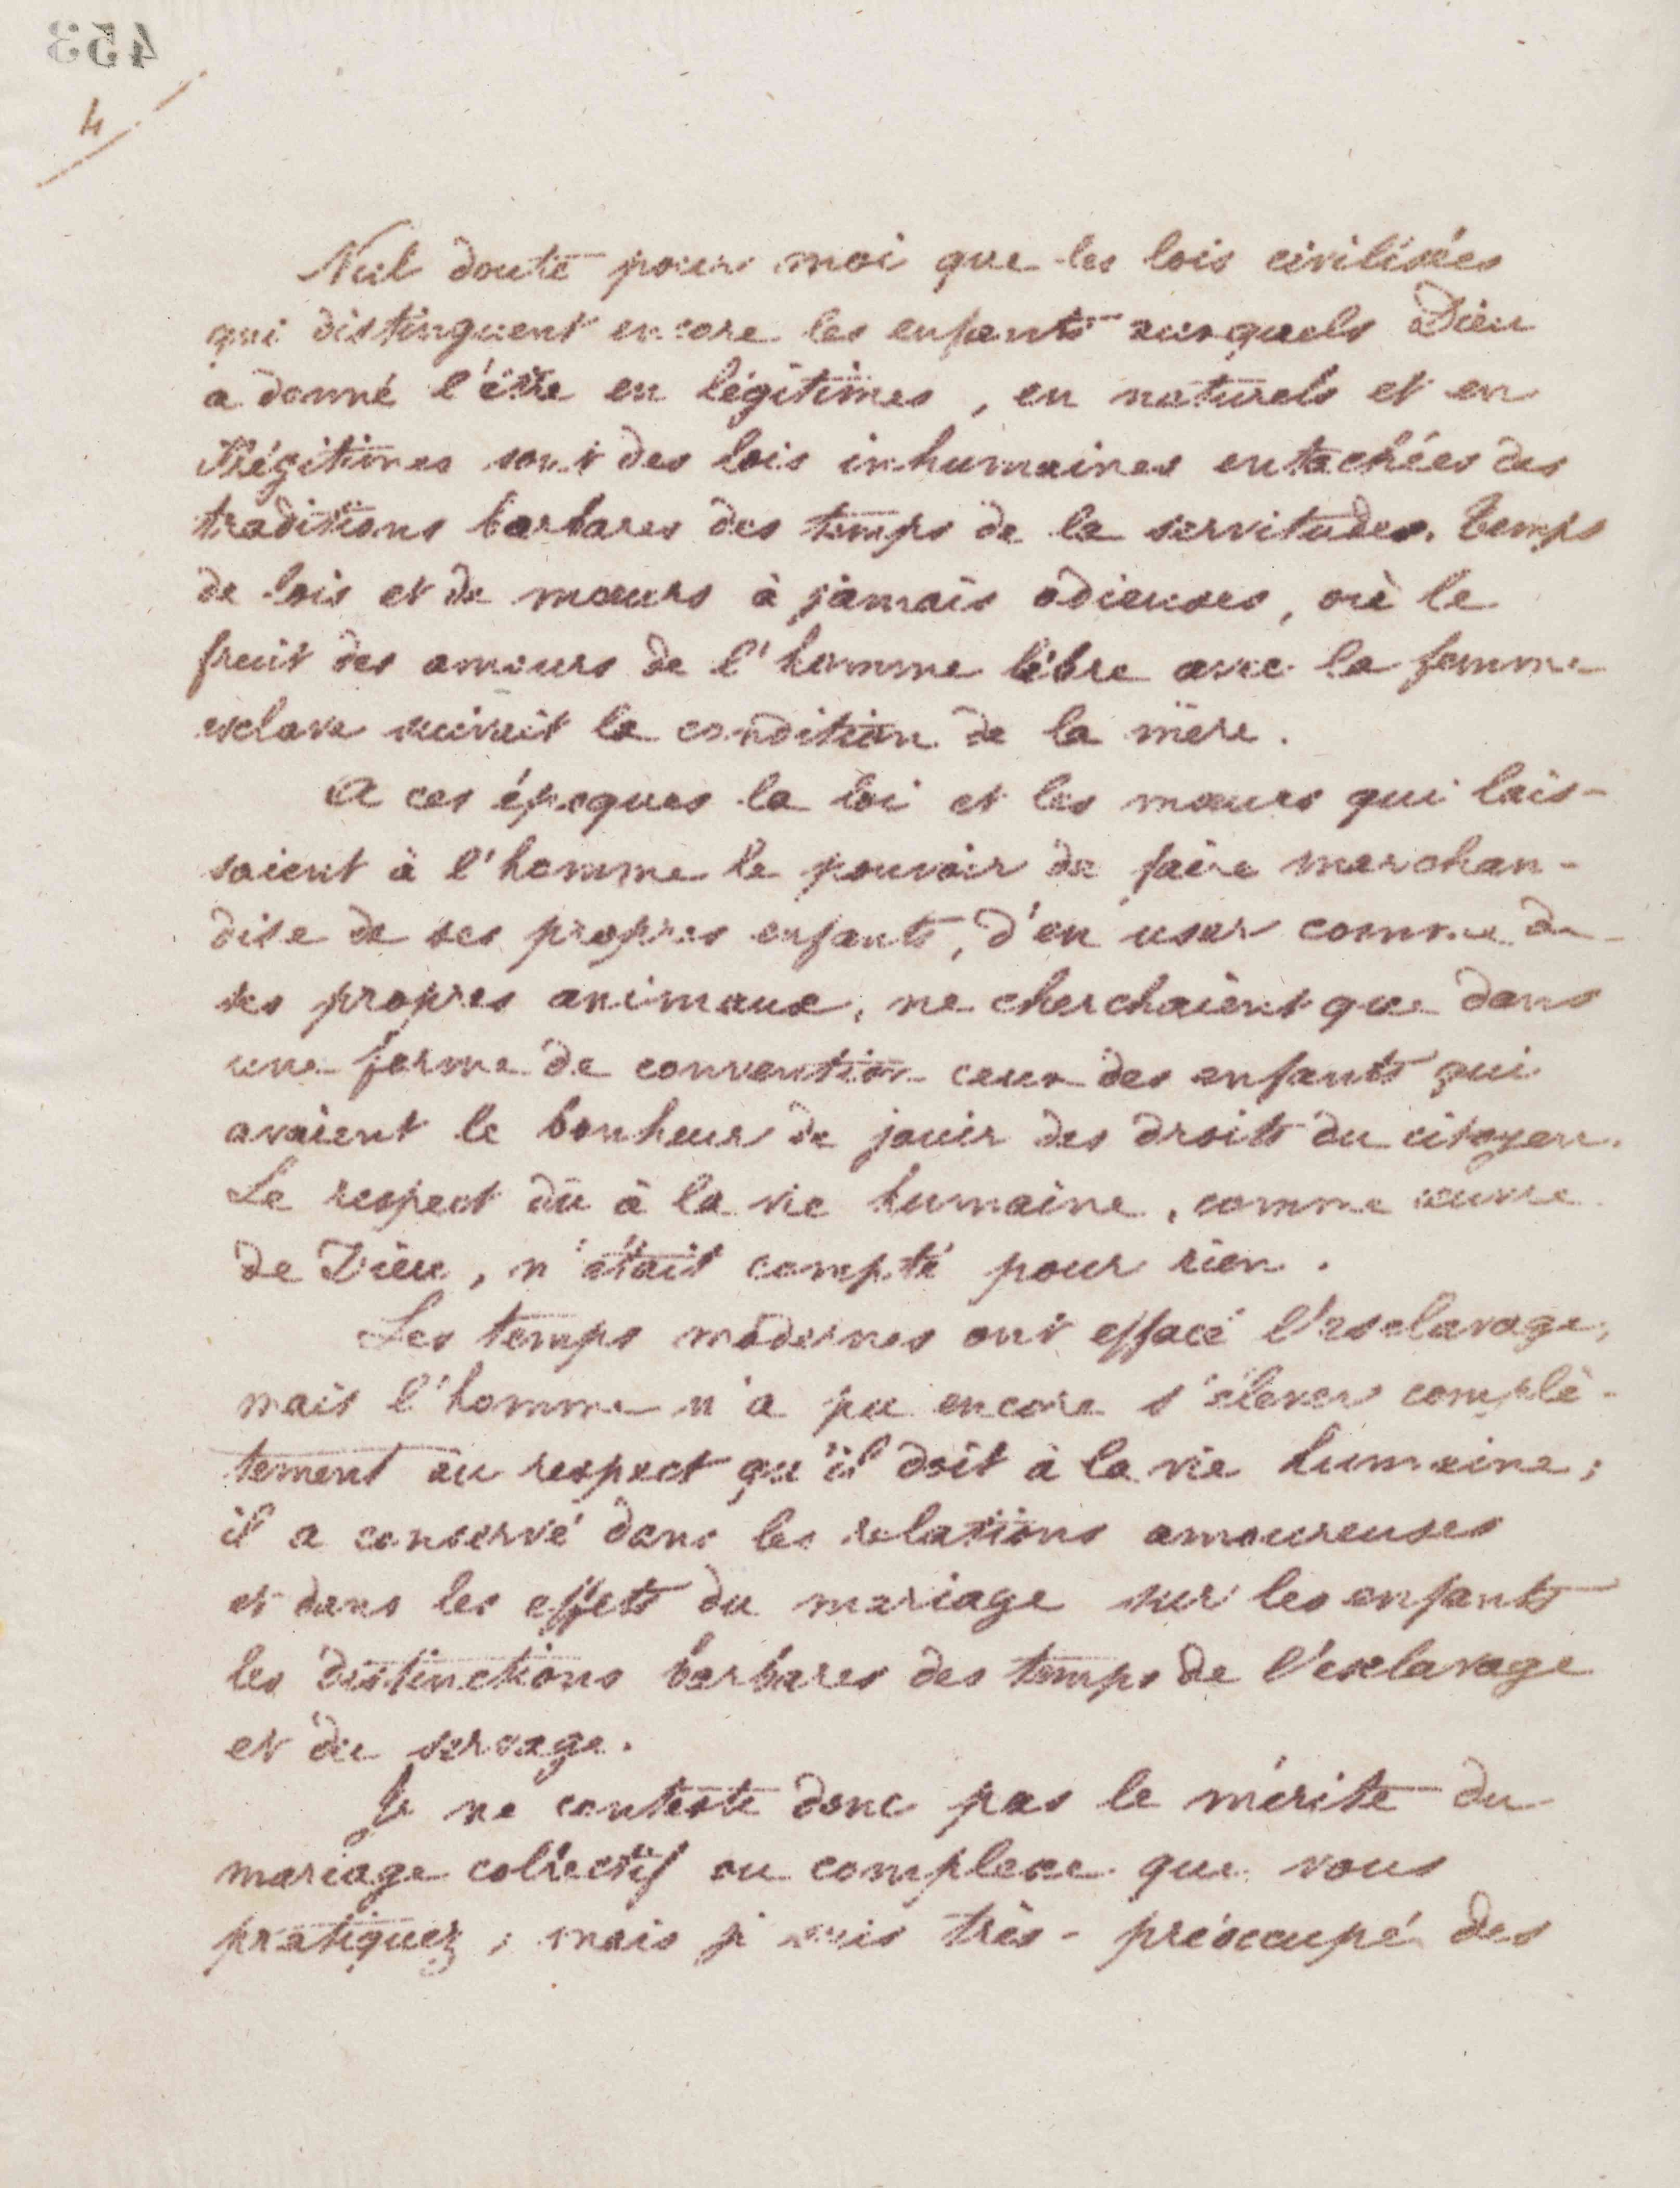 453
4
Nul doute pour moi que les lois civilisées
qui distinguent encore les enfants auxquels Dieu
a donné l'être en légitimes, en naturels et en
illégitimes sont des lois inhumaines entachées des
traditions barbares des temps de la servitude. Temps
de lois et de mœurs à jamais odieuses, où le
fruit des amours de l'homme libre avec la femme
esclave suivait la condition de la mère.
A ces époques la loi et les mœurs qui lais-
saient à l'homme le pouvoir de faire marchan-
dise de ses propres enfants, d'en user comme de
ses propres animaux, ne cherchaient que dans
une forme de convention ceux des enfants qui
avaient le bonheur de jouir des droits du citoyen.
Le respect dû à la vie humaine, comme œuvre
de Dieu, n'était compté pour rien.
Les temps modernes ont effacé l'esclavage,
mais l'homme n'a pu encore s'élever complè-
tement au respect qu'il doit à la vie humaine;
il a conservé dans les relations amoureuses
et dans les effets du mariage sur les enfants
les distinctions barbares des temps de l'esclavage
et du servage.
Je ne conteste donc pas le mérite du
mariage collectif ou complexe que vous
pratiquez; mais je suis très-préoccupé des